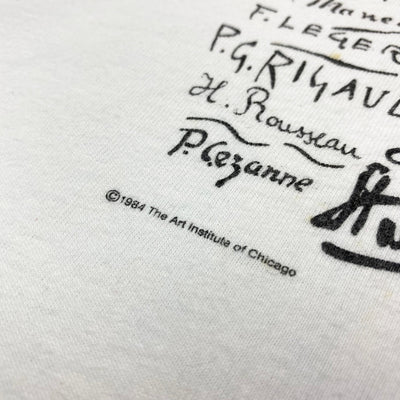 F. LEGER
P.G. RIGAUL
H. Rousseau
P. Cezanne
©1984 The Art Institute of Chicago